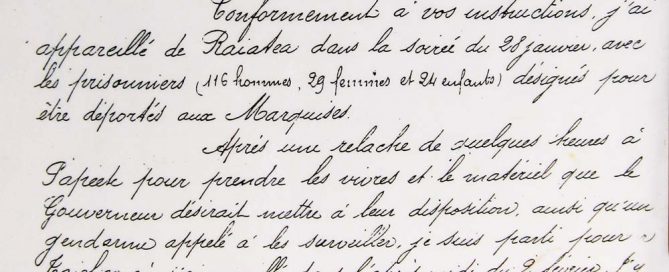 Conformement à vos instructions, j'ai
appareillé de Raiatea dans la soirée du 28 janvier, avec
les prisonniers (116 hommes, 29 femmes et 24 enfants) désignés pour
être déportés aux Marquises.
Après une relache de quelques heures à
Papeete pour prendre les vivres et le matériel que le
Gouverneur désirait mettre à leur disposition, ainsi qu'un
gendarme appelé à les surveiller, je suis parti pour